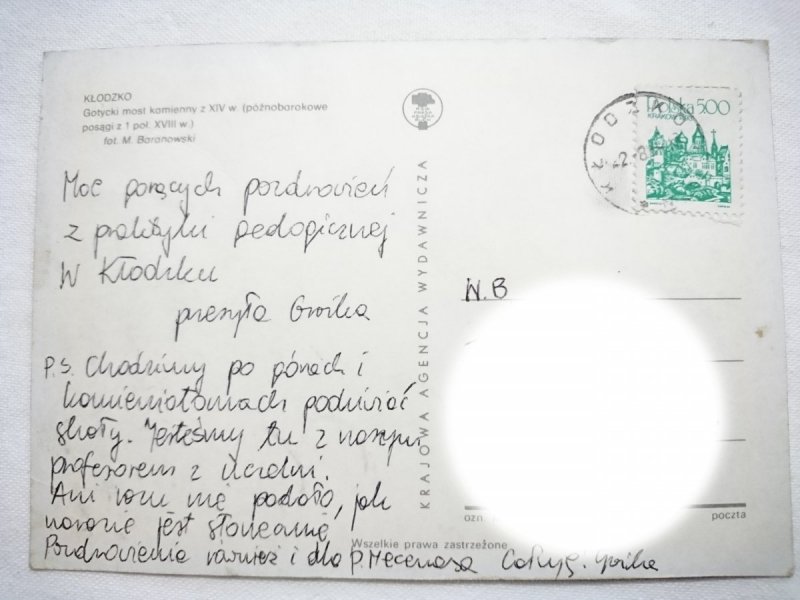 KŁODZKO
Gotycki most kamienny z XIV w. (późnobarokowe
posągi z 1 poł. XVIII w.)
fot. M. Baranowski
Polska 5.00
KRAKÓW
KŁODZKO
Moc gorących pozdrowień
z praktyki pedogicznej
w Kłodzku
przesyła
P.S. Chodzimy po górach i
kamieniołomach podziwiać
skały. Jesteśmy tu z naszym
profesorem z Uczelni.
Ani
jest słonecznie
Pozdrowienia również i dla p. Mecenasa
KRAJOWA AGENCJA WYDAWNICZA
W.B
poczta
Wszelkie prawa zastrzeżone